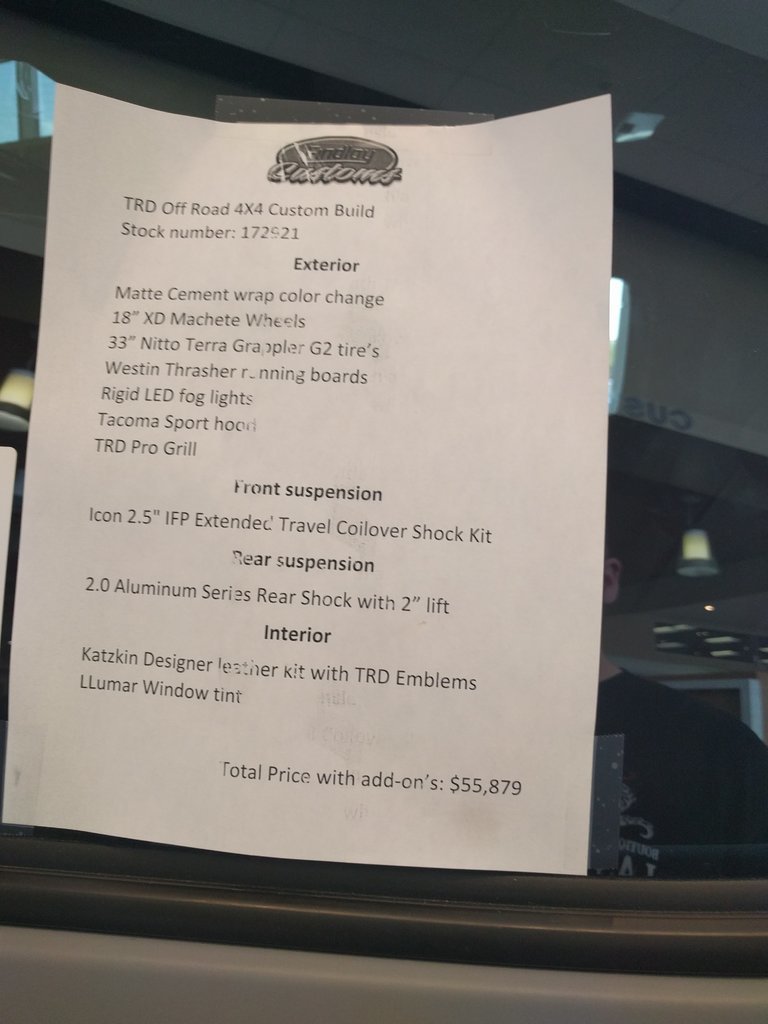 Findlay
Customs
TRD Off Road 4X4 Custom Build
Stock number: 172921
Exterior
Matte Cement wrap color change
18" XD Machete Wheels
33" Nitto Terra Grappler G2 tire's
Westin Thrasher running boards
Rigid LED fog lights
Tacoma Sport hood
TRD Pro Grill
Front suspension
Icon 2.5" IFP Extended Travel Coilover Shock Kit
Rear suspension
2.0 Aluminum Series Rear Shock with 2" lift
Interior
Katzkin Designer leather kit with TRD Emblems
LLumar Window tint
Total Price with add-on's: $55,879